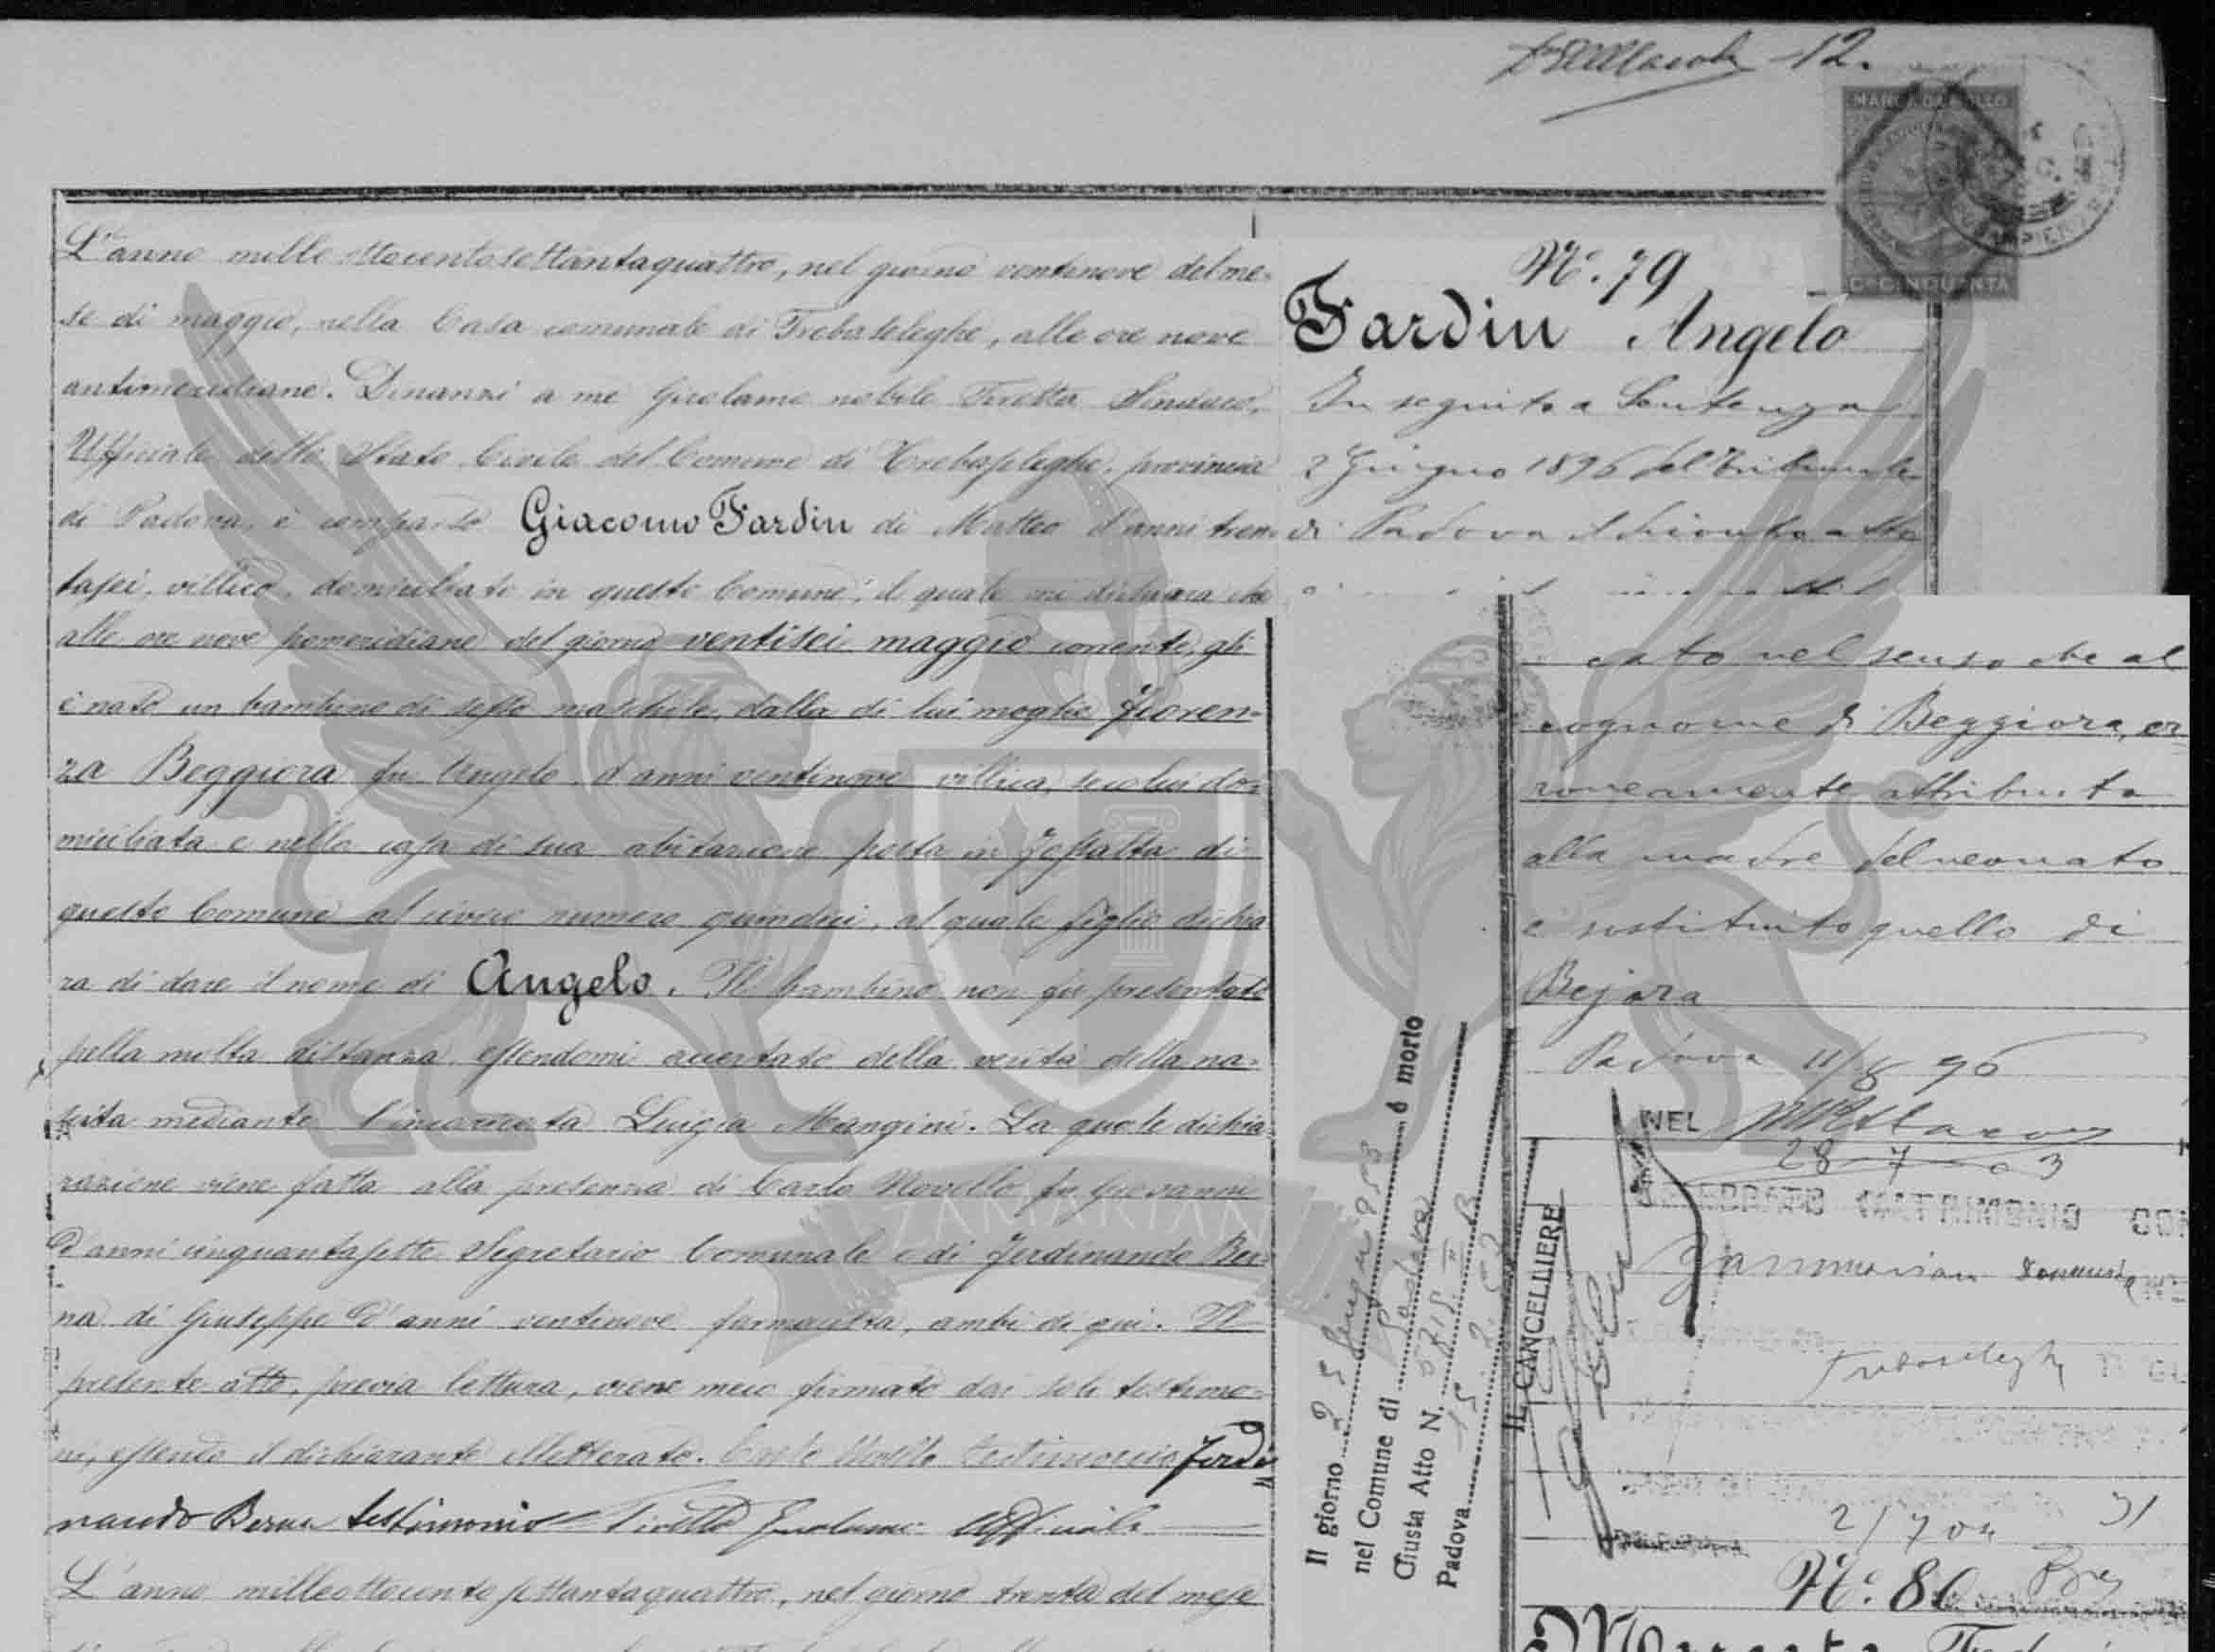 12.
MARCA DA BOLLO
Cᵐⁱ CINQUANTA
L'anno mille ottocentosettantaquattro, nel giorno ventinove del me-
se di maggio, nella Casa comunale di Trebaseleghe, alle ore nove
antimeridiane. Dinanzi a me Girolamo nobile Tiretta Sindaco,
Ufficiale dello Stato Civile del Comune di Trebaseleghe, provincia
di Padova, è comparso Giacomo Fardin di Matteo d'anni tren-
tasei, villico, domiciliato in questo Comune, il quale mi dichiara che
alle ore nove pomeridiane del giorno ventisei maggio corrente, gli
è nato un bambino di sesso maschile, dalla di lui moglie Fioren-
za Beggiora fu Angelo, d'anni ventinove villica, seco lui do-
miciliata e nella casa di sua abitazione posta in Fossalta di
questo Comune al civico numero quindici, al quale figlio dichia
ra di dare il nome di Angelo. Il bambino non fu presentato
pella molta distanza essendomi accertato della verità della na-
scita mediante l'incaricata Luigia Mangini. La quale dichia
razione viene fatta alla presenza di Carlo Novello fu Giovanni
d'anni cinquantasette Segretario Comunale e di Ferdinando Ber-
na di Giuseppe d'anni ventinove farmacista, ambi di qui. Il
presente atto, previa lettura, viene meco firmato dai soli testimo-
ni, essendo il dichiarante illetterato. Carlo Novello testimonio Ferdi
nando Berna testimonio Tiretta Girolamo Uffiziale
L'anno milleottocentosettantaquattro, nel giorno trenta del mese
Nº. 79
Fardin Angelo
In seguito a Sentenza
2 Giugno 1896 del Tribunale
di Padova il controscritto atto
cato nel senso che al
cognome di Beggiora, er
roneamente attribuito
alla madre del neonato
è sostituito quello di
Bejora
Padova 11/8 96
IL CANCELLIERE
NEL
28-7-03
Zammarian Domenica
Trebaseleghe
2/7 04
31
Il giorno 25 giugno 1953 è morto
nel Comune di Padova
Giusta Atto N. 571 S. II B
Padova
Nº. 80
ZAMARIAN